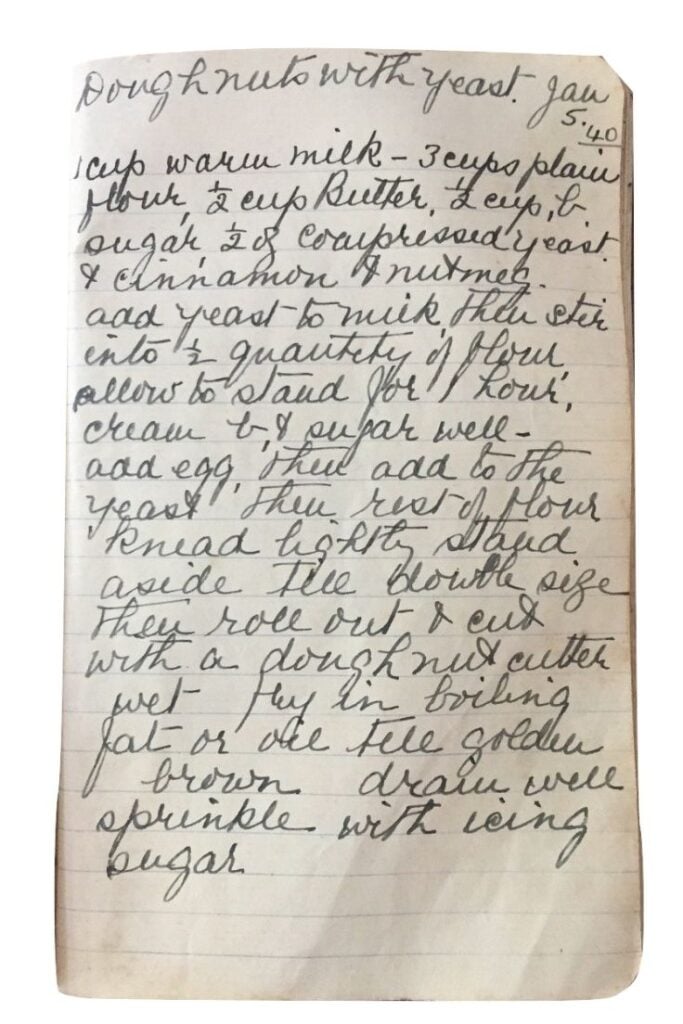 Doughnuts with yeast. Jan
5. 40
1 cup warm milk - 3 cups plain
flour, ½ cup Butter, ½ cup, b
sugar, ½ oz compressed yeast.
& cinnamon & nutmeg.
add yeast to milk, then stir
into ½ quantity of flour,
allow to stand for 1 hour,
cream b, & sugar well -
add egg, then add to the
yeast then rest of flour
knead lightly stand
aside till double size
then roll out & cut
with a doughnut cutter
wet fry in boiling
fat or oil till golden
brown drain well
sprinkle with icing
sugar